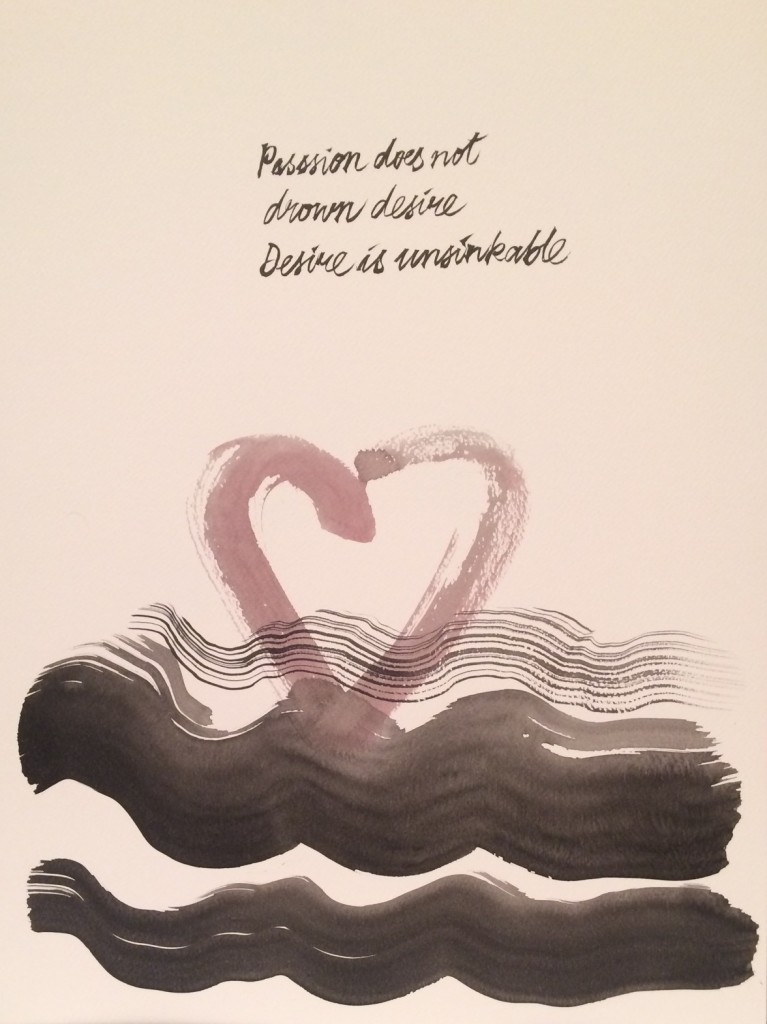 Passsion does not
drown desire
Desire is unsinkable